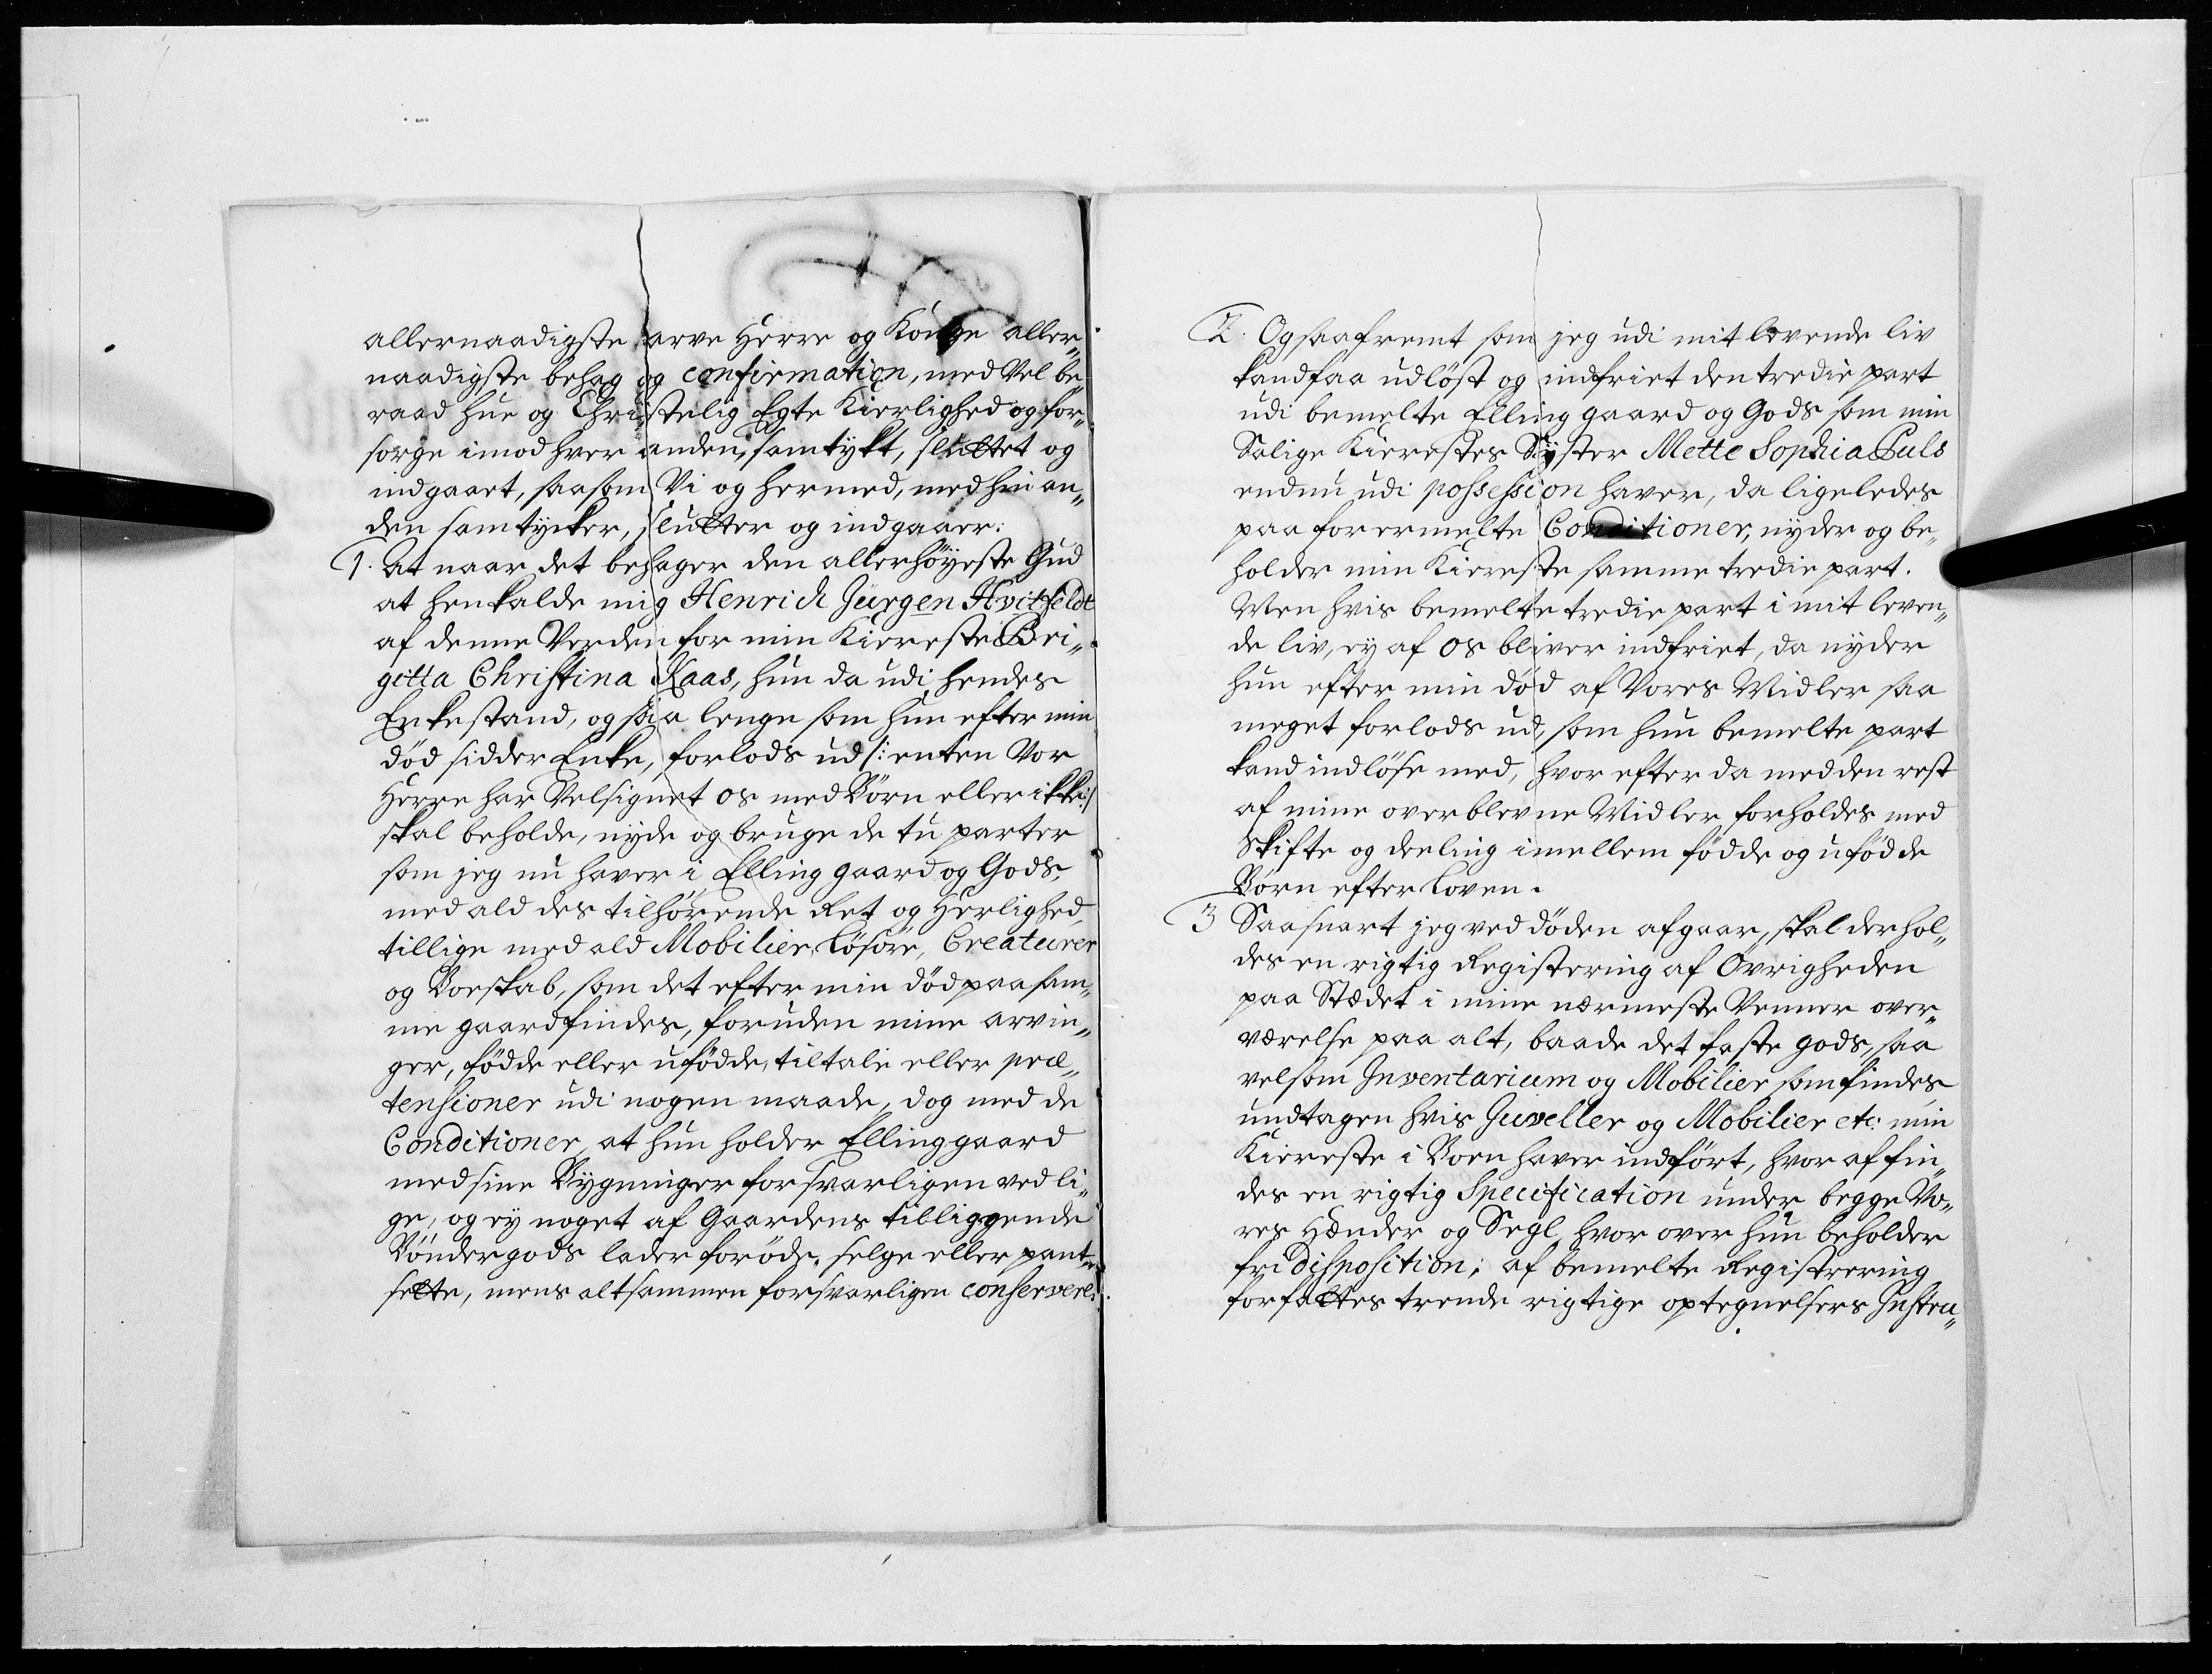 allernaadigste arve Herre og Konge aller„
naadigste behag og confirmation, med Vel be„
raad hue og Christelig Egte Kierlighed og for„
sorge imod hver anden, samtykt, sluttet og
indgaaet, saasom Vi og hermed, med hin an„
den samtycker, slutter og indgaaer:
1. At naar det behager den allerhöyeste Gud
at henkalde mig Henrich Jürgen Hvitfeldt
af denne Verden for min Kiereste Bri„
gitta Christina Kaas, hun da udi hendes
Enkestand, og saa lenge som hun efter min
död sidder Enke, forlods ud /: enten Vor
Herre har Velsignet os med Börn eller ikke :/
skal beholde, nyde og bruge de tu parter
som jeg nu haver i Elling gaard og Gods,
med ald des tilhörende Ret og Herlighed,
tillige med ald Mobilier, Lösöre, Creaturer
og Boeskab, som det efter min död paa sam„
me gaard findes, foruden mine arvin„
ger, födde eller ufödde, tiltale eller præ„
tensioner udi nogen maade, dog med de
Conditioner, at hun holder Elling gaard
med sine Bygninger forsvarligen ved li„
ge, og ey noget af Gaardens tilliggende
Böndergods lader foröde, selge eller pant„
sette, mens altsammen forsvarligen conservere.
2. Og saafremt som jeg udi mit levende liv
kand faa udlöst og indfriet den tredie part
udi bemelte Elling gaard og Gods som min
Salige Kierestes Syster Mette Sophia Puls
endnu udi possession haver, da ligeledes
paa forermelte Conditioner, nyder og be„
holder min Kiereste samme tredie part.
Men hvis bemelte tredie part i mit leven„
de liv, ey af os bliver indfriet, da nyder
hun efter min död af Vores Midler saa
meget forlods ud, som hun bemelte part
kand indlöse med, hvor efter da med den rest
af mine overblevne Midler forholdes med
Skifte og deeling imellem födde og ufödde
Börn efter Loven.
3 Saasnart jeg ved döden afgaar, skal der hol„
des en rigtig Registering af Övrigheden
paa Stædet i mine nærmeste Venner over„
værelse paa alt, baade det faste gods, saa
velsom Inventarium og Mobilier som findes
undtagen hvis Juveller og Mobilier etc: min
Kiereste i Boen haver indfört, hvor af fin„
des en rigtig Specification under begge Vo„
res Hænder og Segl, hvor over hun beholder
fri Disposition; af bemelte Registrering
forfattes trende rigtige optegnelsers Instru„